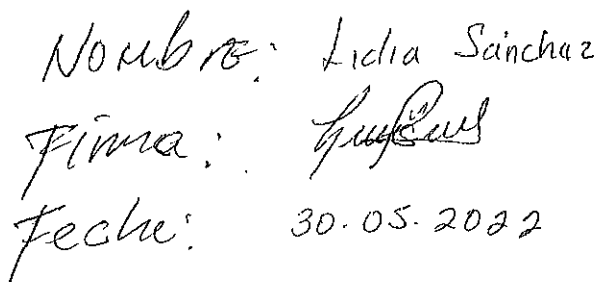 Nombre: Lidia Sánchaz
Firma:
Feche: 30.05.2022